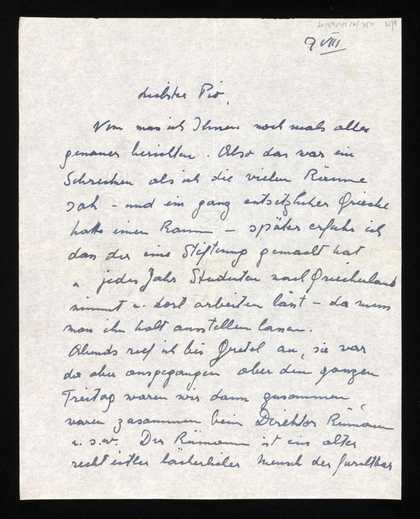 7 VIII
Liebster Pio,
Nun muss ich Ihnen nochmals alles
genauer berichten. Also das war ein
Schrecken als ich die vielen Räume
sah – und ein ganz entsetzlicher Grieche
hatte einen Raum – später erfuhr ich
das der eine Stiftung gemacht hat
u. jedes Jahr Studenten nach Griechenland
nimmt u. dort arbeiten lässt – da muss
man ihn halt ausstellen lassen.
Abends rief ich bei Gretel an, sie war
da aber ausgegangen aber den ganzen
Freitag waren wir dann zusammen,
waren zusammen beim Direktor Rümann
u.s.w. Der Rümann ist ein alter
recht eitler lächerlicher Mensch der furchtbar